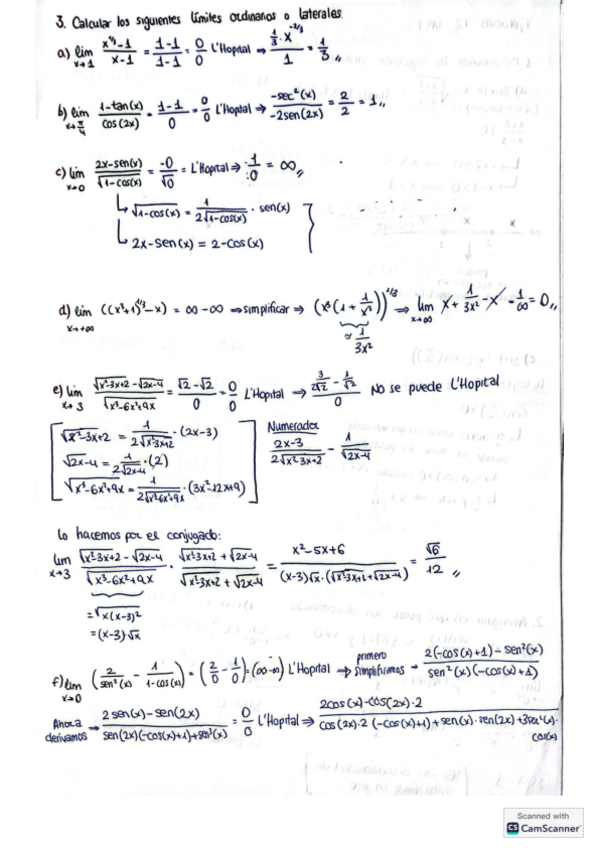 3. Calcular los siguientes límites ordinarios o laterales
a) lim x→1 (x^(1/3) - 1)/(x - 1) = (1-1)/(1-1) = 0/0 L'Hopital ⇒ (1/3 · x^(-2/3))/1 = 1/3 ,,
b) lim x→π/4 (1-tan(x))/cos(2x) = (1-1)/0 = 0/0 L'Hopital ⇒ (-sec²(x))/(-2sen(2x)) = 2/2 = 1 ,,
c) lim x→0 (2x-sen(x))/√(1-cos(x)) = -0/√0 = L'Hopital ⇒ 1/0 = ∞ ,,
↳ √(1-cos(x)) = 1/(2√(1-cos(x))) · sen(x)
↳ 2x-sen(x) = 2-cos(x)
d) lim x→+∞ ((x³+1)^(1/3) - x) = ∞-∞ ⇒ simplificar ⇒ (x³(1 + 1/x³))^(1/3) ⇒ lim x→∞ x + 1/3x² - x = 1/∞ = 0 ,,
≈ 1/3x²
e) lim x→3 (√(x²-3x+2) - √(2x-4))/√(x³-6x²+9x) = (√2-√2)/0 = 0/0 L'Hopital ⇒ (3/(2√2) - 1/√2)/0 No se puede L'Hopital
√(x²-3x+2) = 1/(2√(x²-3x+2)) · (2x-3)
√(2x-4) = 1/(2√(2x-4)) · (2)
√(x³-6x²+9x) = 1/(2√(x³-6x²+9x)) · (3x²-12x+9)
Numerador
(2x-3)/(2√(x²-3x+2)) - 1/√(2x-4)
Lo hacemos por el conjugado:
lim x→3 (√(x²-3x+2) - √(2x-4))/√(x³-6x²+9x) · (√(x²-3x+2) + √(2x-4))/(√(x²-3x+2) + √(2x-4)) = (x²-5x+6)/((x-3)√x · (√(x²-3x+2) + √(2x-4))) = √6/12 ,,
= √(x(x-3)²)
= (x-3)√x
f) lim x→0 (2/sen²(x) - 1/(1-cos(x))) = (2/0 - 1/0) = (∞-∞) L'Hopital → primero simplificamos → (2(-cos(x)+1) - sen²(x))/(sen²(x)(-cos(x)+1))
Ahora derivamos → (2sen(x) - sen(2x))/(sen(2x)(-cos(x)+1)+sen³(x)) = 0/0 L'Hopital ⇒ (2cos(x)-cos(2x)·2)/(cos(2x)·2(-cos(x)+1)+sen(x)·sen(2x)+3sen²(x)·cos(x))
Scanned with
CS CamScanner